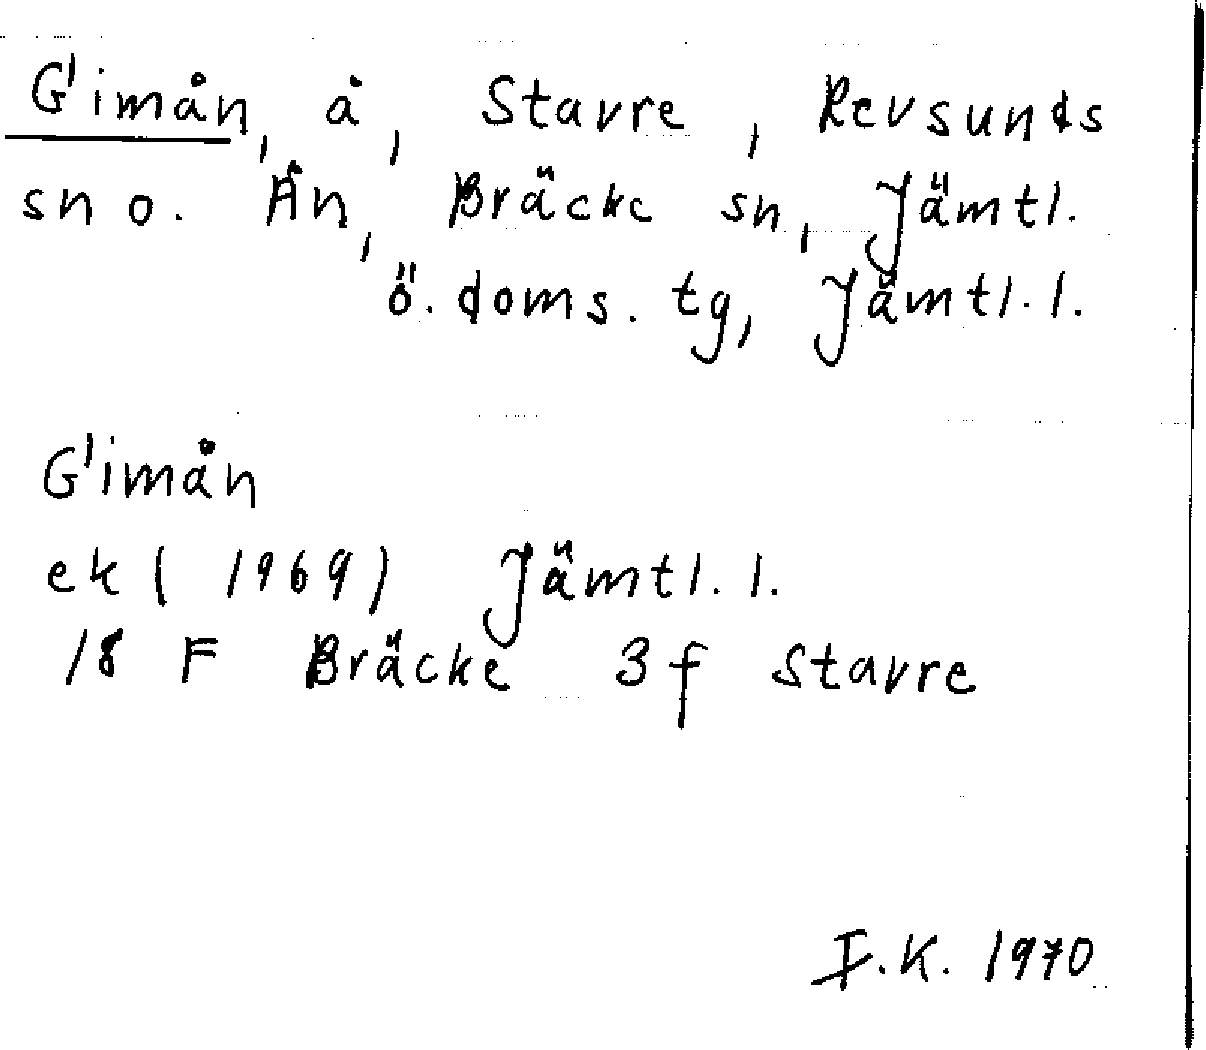 G'imån, å, Stavre, Revsunds
sn o. Ån, Bräcke sn, Jämtl.
ö. doms. tg, Jämtl. l.
G'imån
ek (1969) Jämtl. l.
18 F Bräcke 3f Stavre
I.K. 1970